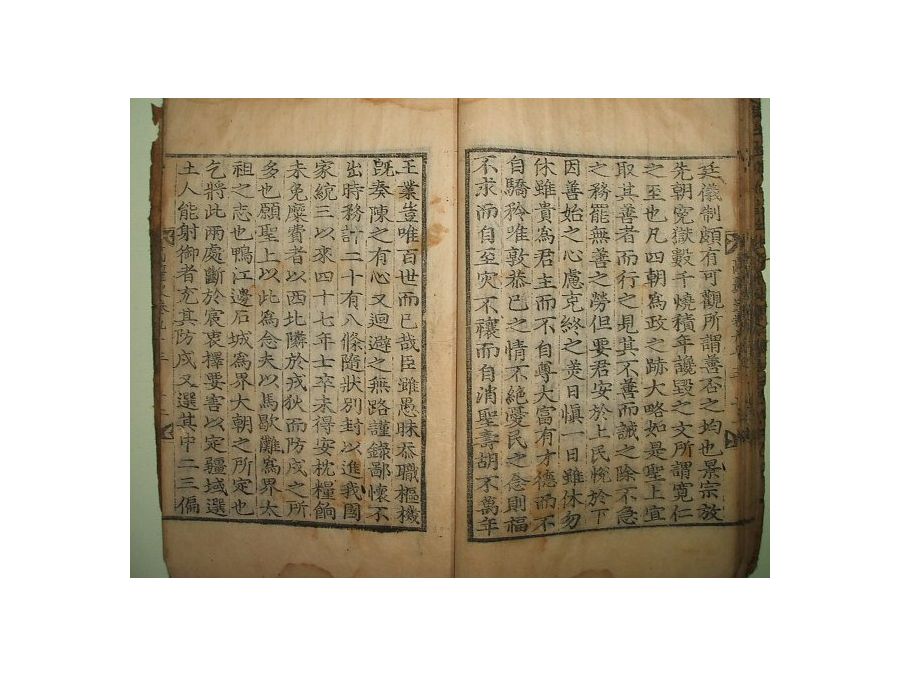 廷儀制頗有可觀所謂善否之均也景宗放
先朝寃獄數千燒積年讒毁之文所謂寬仁
之至也凡四朝爲政之跡大略如是聖上宜
取其善者而行之見其不善而誡之除不急
之務罷無善之勞但要君安於上民悅於下
因善始之心慮克終之美日愼一日雖休勿
休雖貴爲君主而不自尊大富有才德而不
自驕矜唯敦恭已之情不絶憂民之念則福
不求而自至灾不禳而自消聖壽胡不萬年
王業豈唯百世而已哉臣雖愚昧忝職樞機
旣奏陳之有心又迴避之無路謹錄鄙懷不
出時務計二十有八條隨狀別封以進我國
家統三以來四十七年士卒未得安枕糧餉
未免糜費者以西北隣於戎狄而防戍之所
多也願聖上以此爲念夫以馬歇灘爲界太
祖之志也鴨江邊石城爲界大朝之所定也
乞將此兩處斷於宸衷擇要害以定疆域選
土人能射御者充其防戍又選其中二三偏